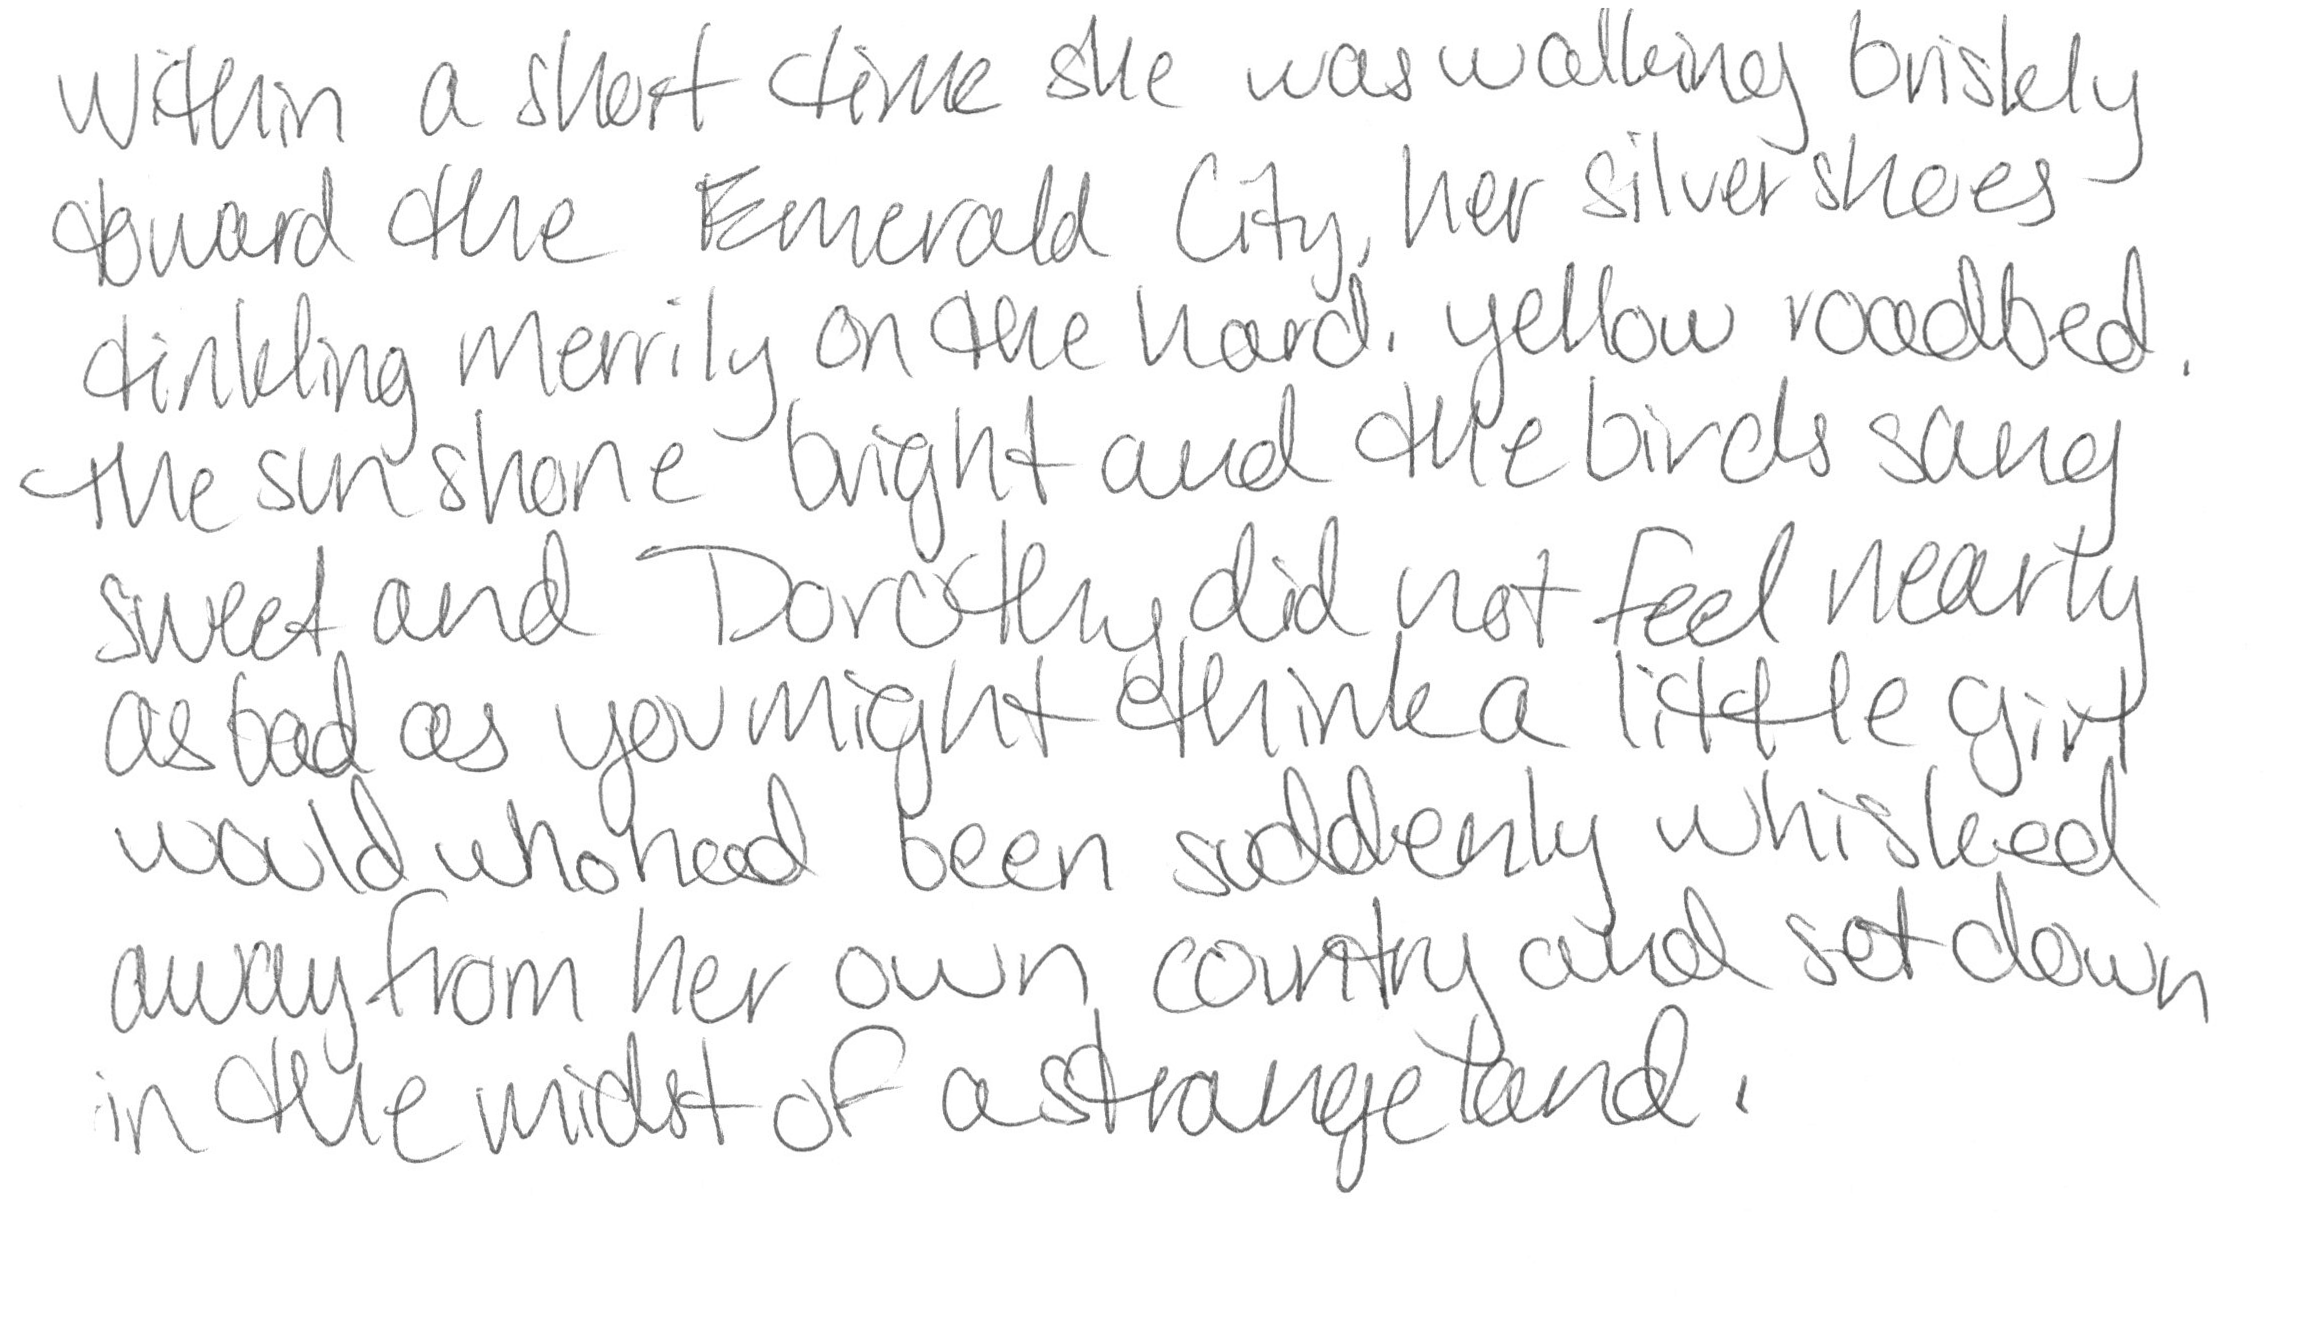 Within a short time she was walking briskly
toward the Emerald City, her silver shoes
tinkling merrily on the hard, yellow roadbed.
the sun shone bright and the birds sang
sweet and Dorothy did not feel nearly
as bad as you might think a little girl
would who had been suddenly whisked
away from her own country and set down
in the midst of a strange land.